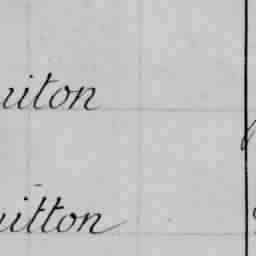 uiton
uitton